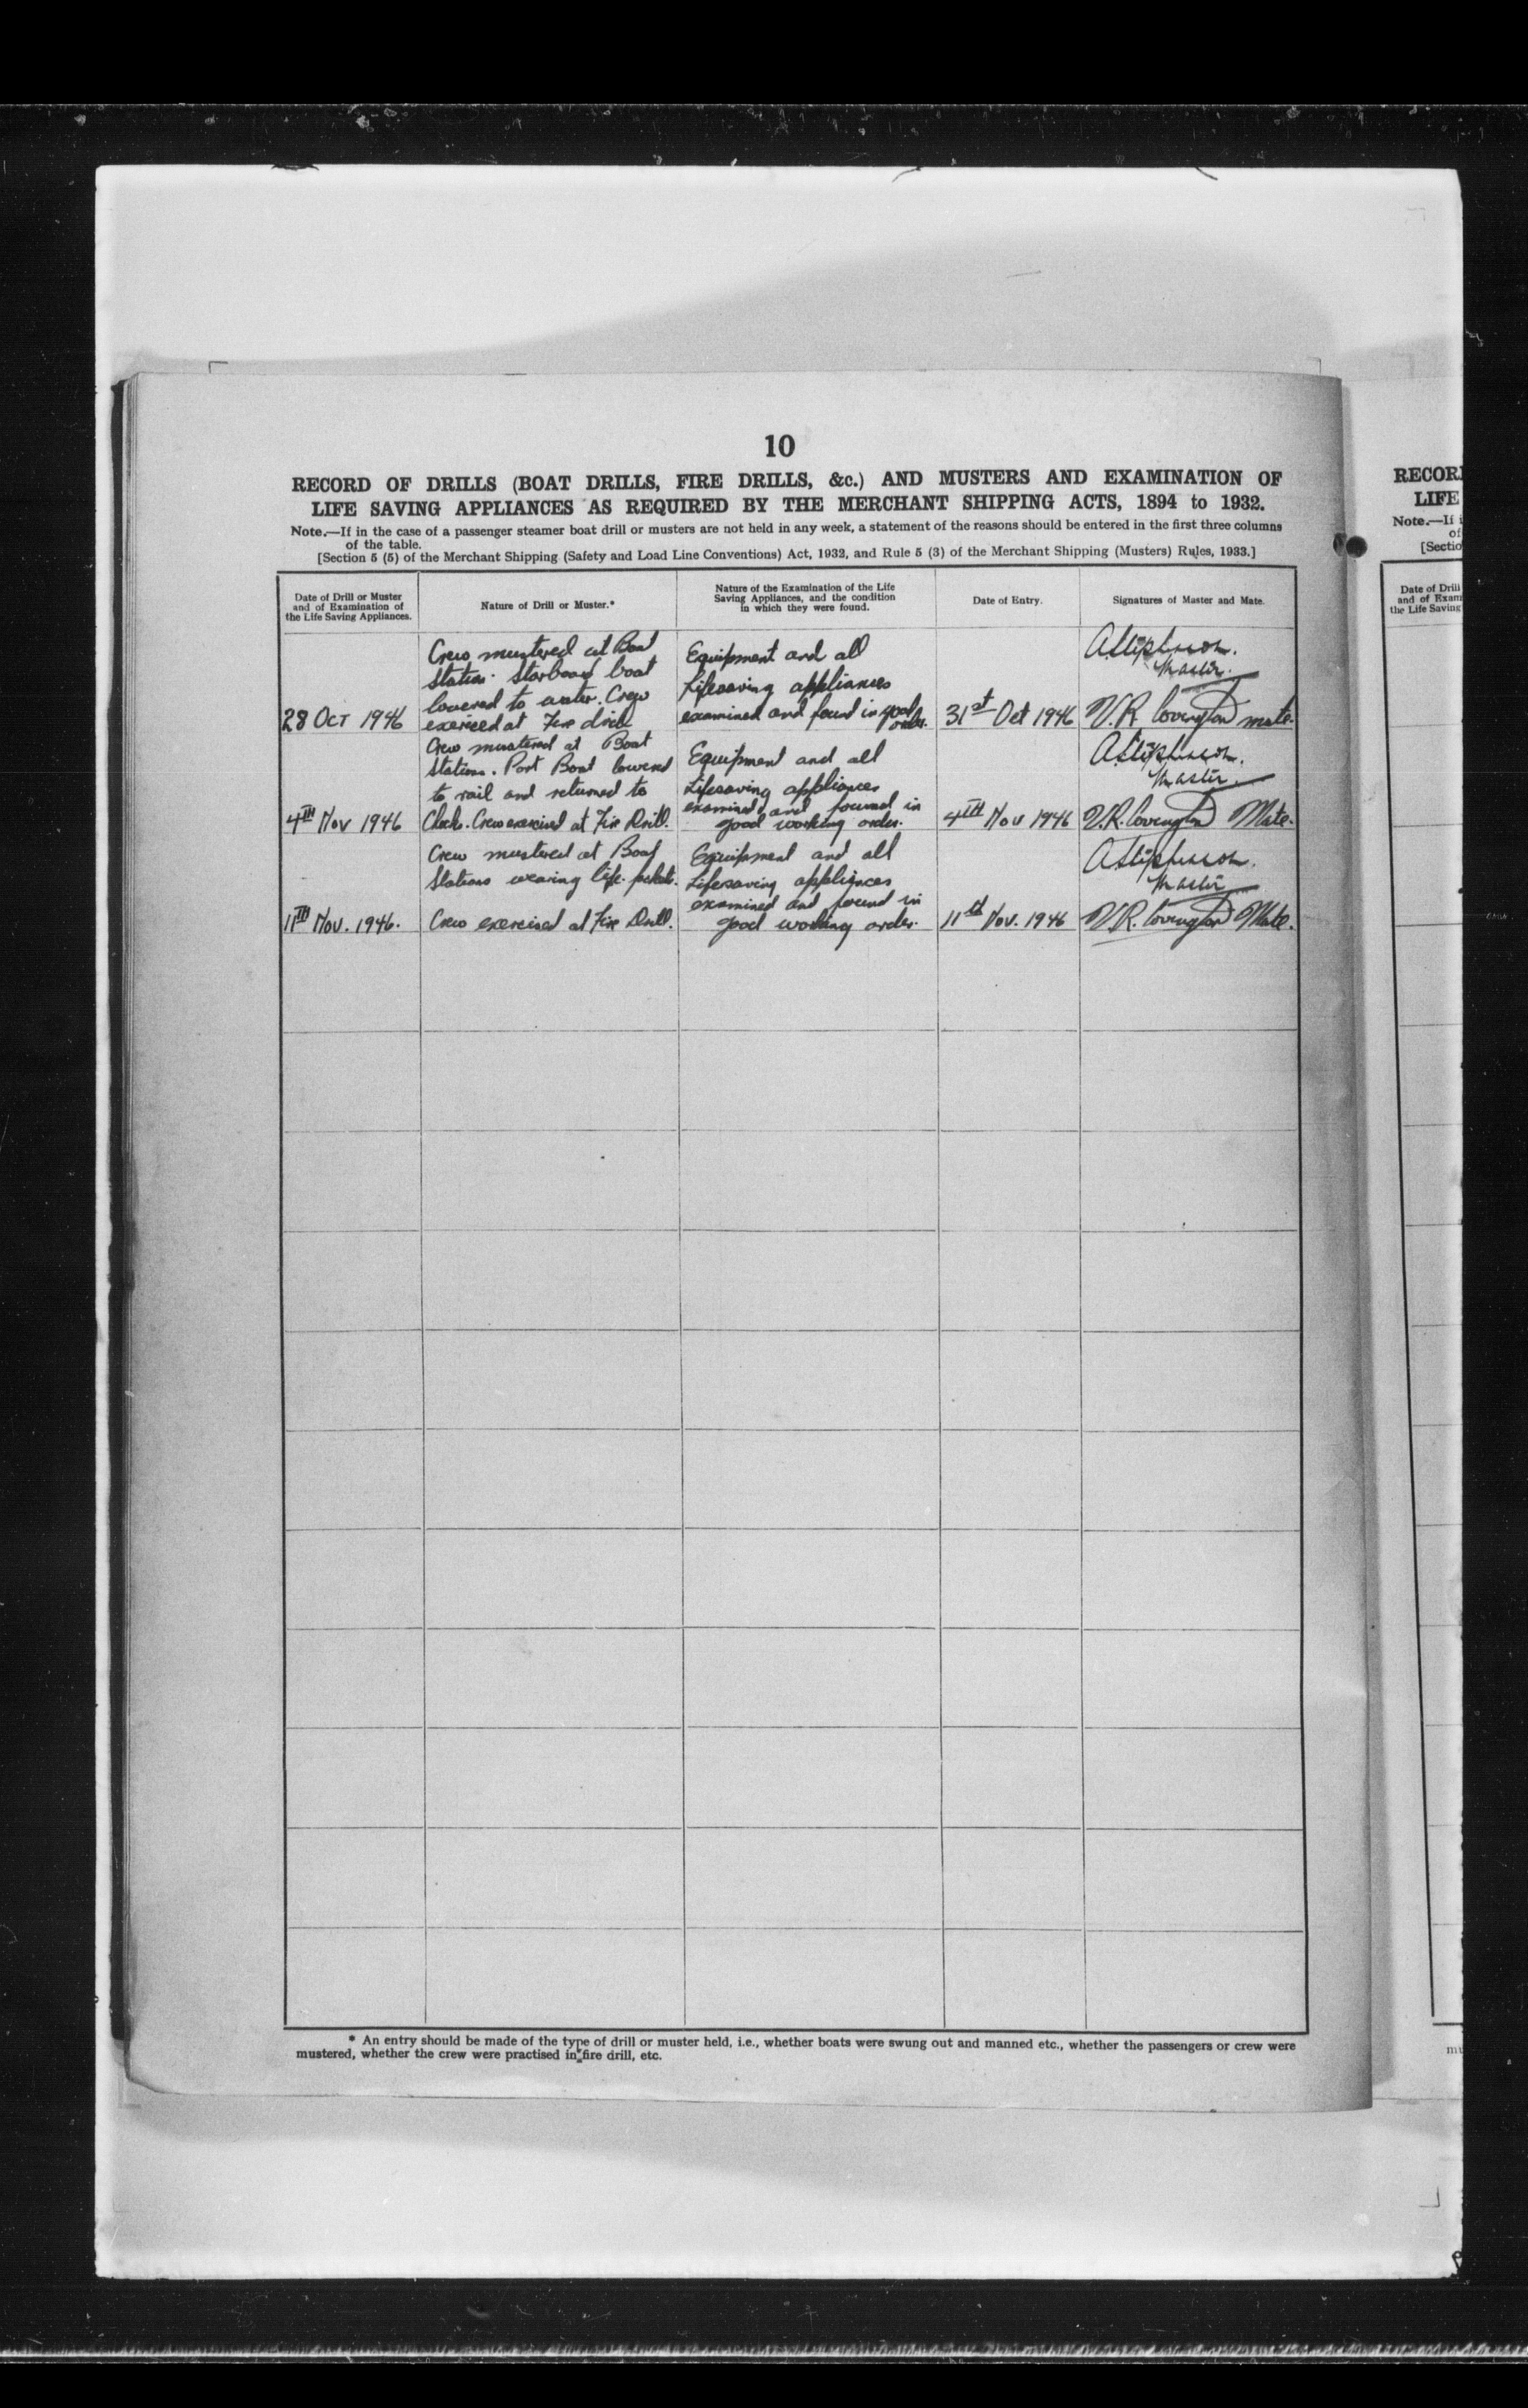 10
RECORD OF DRILLS (BOAT DRILLS, FIRE DRILLS, &c.) AND MUSTERS AND EXAMINATION OF
LIFE SAVING APPLIANCES AS REQUIRED BY THE MERCHANT SHIPPING ACTS, 1894 to 1932.
Note.—If in the case of a passenger steamer boat drill or musters are not held in any week, a statement of the reasons should be entered in the first three columns
of the table.
[Section 5 (5) of the Merchant Shipping (Safety and Load Line Conventions) Act, 1932, and Rule 5 (3) of the Merchant Shipping (Musters) Rules, 1933.]
Date of Drill or Muster
and of Examination of
the Life Saving Appliances.
Nature of Drill or Muster.*
Nature of the Examination of the Life
Saving Appliances, and the condition
in which they were found.
Date of Entry.
Signatures of Master and Mate.
28 OCT 1946
Crew mustered at Boat
Station. Starboard boat
lowered to water. Crew
exercised at Fire drill
Equipment and all
Lifesaving appliances
examined and found in good
order.
31st Oct 1946
A Stephenson.
Master.
V.R Covington mate.
4TH Nov 1946
Crew mustered at Boat
Stations. Port Boat lowered
to rail and returned to
Chocks. Crew exercised at Fire Drill.
Equipment and all
Lifesaving appliances
examined and found in
good working order.
4TH Nov 1946
A Stephenson.
Master.
V.R. Covington Mate.
11TH Nov. 1946.
Crew mustered at Boat
Stations wearing life jackets.
Crew exercised at Fire Drill.
Equipment and all
Lifesaving appliances
examined and found in
good working order.
11th Nov. 1946
A Stephenson.
Master
V.R. Covington Mate.
* An entry should be made of the type of drill or muster held, i.e., whether boats were swung out and manned etc., whether the passengers or crew were
mustered, whether the crew were practised in fire drill, etc.
RECOR
LIFE
Note.—If i
of
[Sectio
Date of Drill
and of Exam
the Life Saving
mu